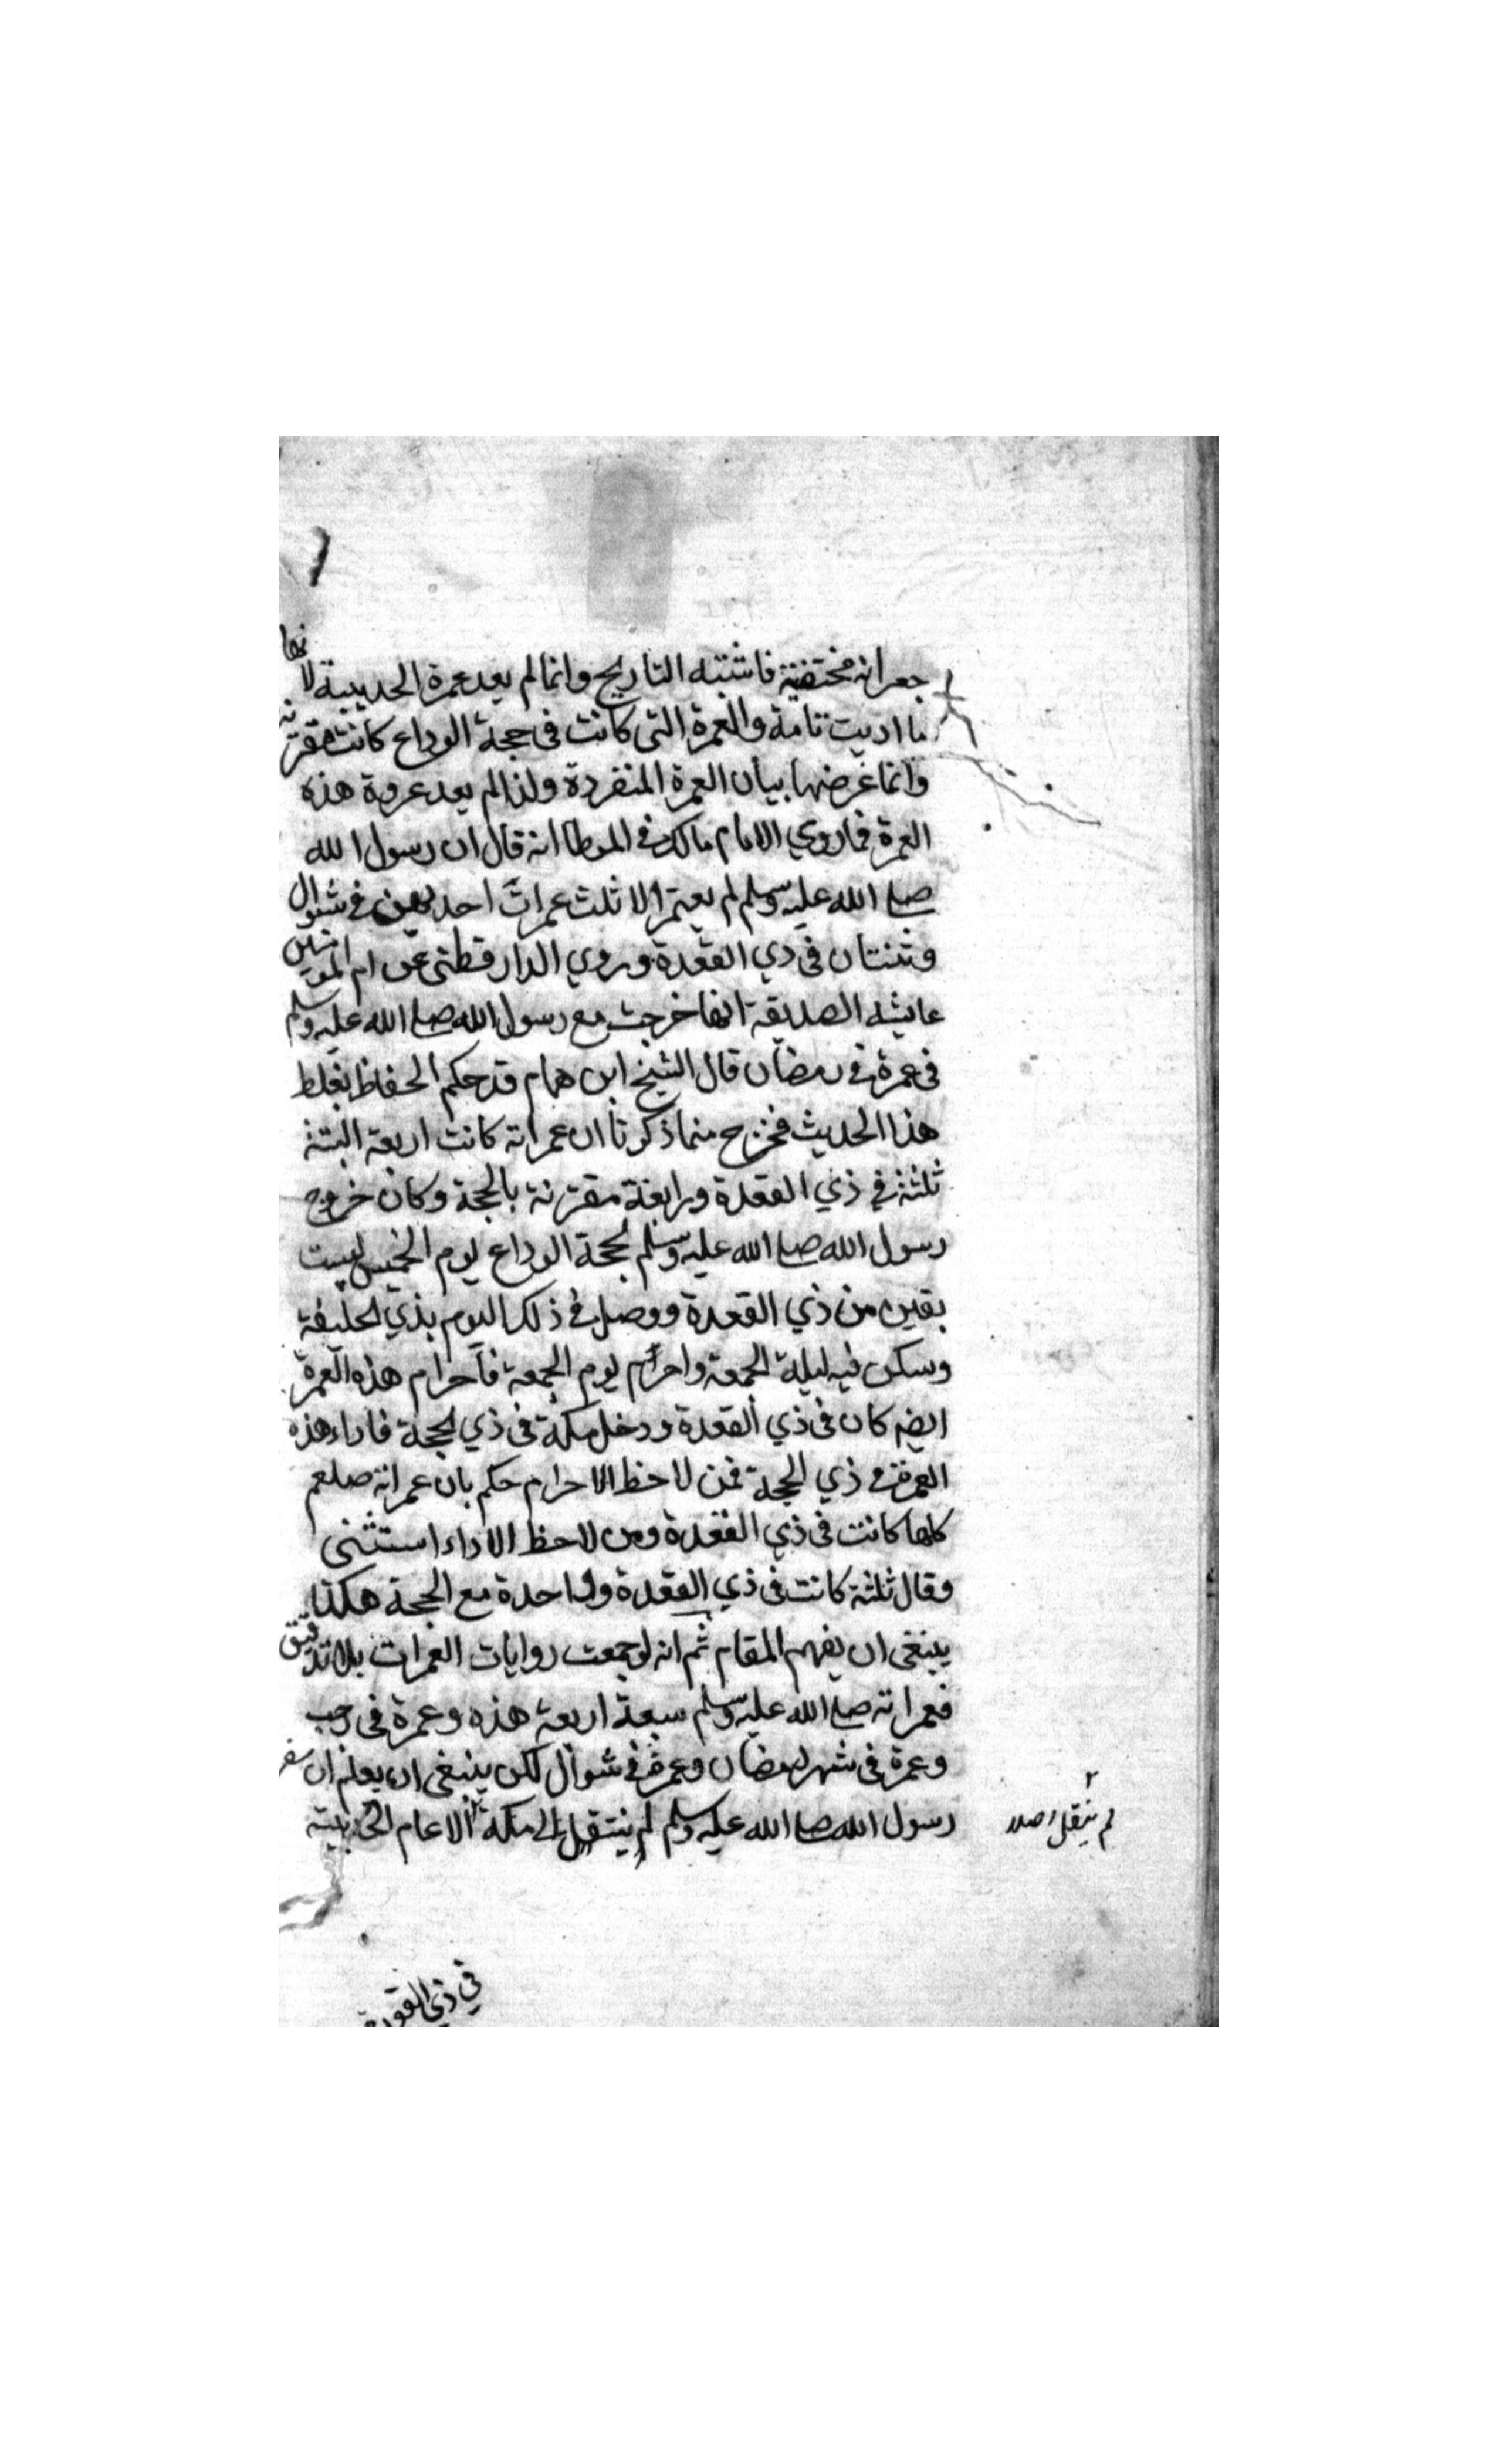 جعرانه مختفية فاشتبه التاريخ وانما لم يعد عمرة الحديبية لانها
ما اديت تامة والعمرة التى كانت فى حجة الوداع كانت مقترنة
وانما غرضها بيان العمرة المنفردة ولذا لم يعد عروة هذه
العمرة فما روي الامام مالك في الموطا انه قال ان رسول الله
صلے الله عليه وسلم لم يعتمر الا ثلث عمرات احديهن في شوال
وثنتان فى ذي القعدة وروي الدار قطنى عن ام المومنين
عايشه الصديقة انها خرجت مع رسول الله صلے الله عليه وسلم
فى عمرة في رمضان قال الشيخ ابن همام قد حكم الحفاظ بغلط
هذا الحديث فخرج مما ذكرنا ان عمراته كانت اربعة البتة
ثلثة في ذي القعدة ورابعة مقترنة بالحجة وكان خروج
رسول الله صلے الله عليه وسلم لحجة الوداع يوم الخميس لست
بقين من ذي القعدة ووصل في ذلك اليوم بذي الحليفة
وسكن فيه ليلة الجمعة واحرام يوم الجمعة فاحرام هذه العمرة
ايضه كان فى ذي القعدة ودخل مكة فى ذي الحجة فاداء هذه
العمرة في ذي الحجة فمن لاحظ الاحرام حكم بان عمراته صلعم
كلها كانت فى ذي القعدة ومن لاحظ الاداء استثنى
وقال ثلثة كانت فى ذي القعدة وواحدة مع الحجة هكذا
ينبغى ان يفهم المقام ثم انه لو جمعت روايات العمرات بلا تدقيق
فعمراته صلے الله عليه وسلم سبعة اربعة هذه وعمرة فى رجب
وعمرة فى شهر رمضان وعمرة في شوال لكن ينبغى ان يعلم ان سفر
رسول الله صلے الله عليه وسلم لم ينتقل الى مكة الا عام الحديبية
لم ينقل اصلا
في ذي القعدة